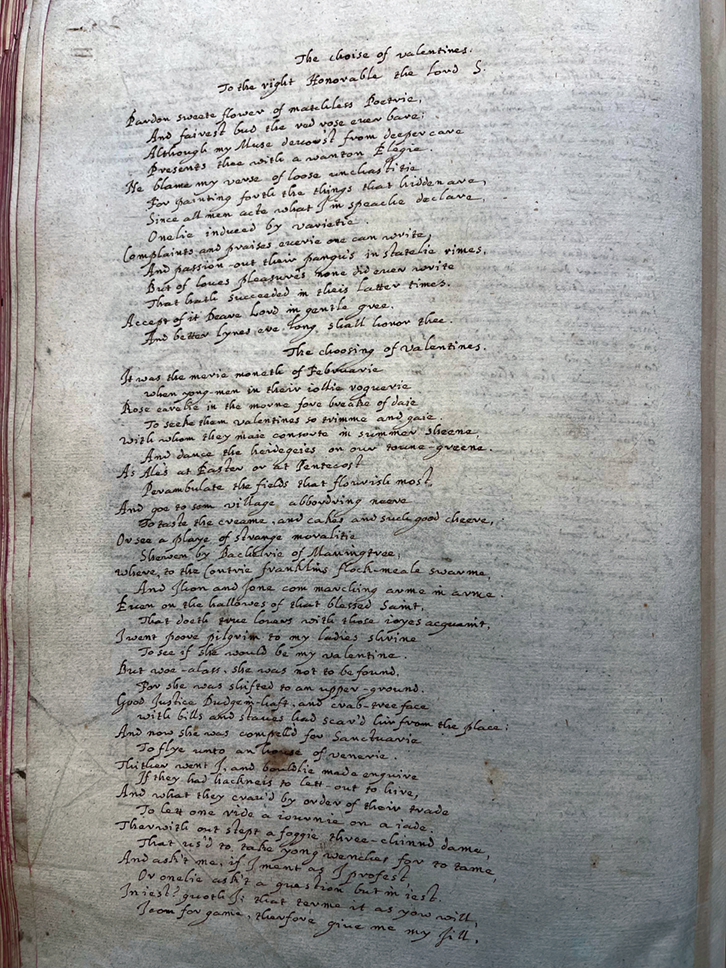 The choise of valentines.
To the right Honorable the Lord S.
Pardon sweete flower of matchless Poetrie,
And fairest bud the red rose euer bare;
Although my Muse devorst from deeper care
Presents thee with a wanton Elegie.
Ne blame my verse of loose unchastitie
For painting forth the things that hidden are,
Since all men acte what I in speache declare,
Onelie induced by varietie.
Complaints and praises euerie one can write,
And passion-out their pangu's in statelie rimes,
But of loues pleasure's none did euer write
That hath succeeded in theis latter times.
Accept of it Deare Lord in gentle gree,
And better lynes ere long shall honor thee.
The choosing of valentines.
It was the merie moneth of Februarie
when yong-men in their iollie roguerie
Rose earelie in the morne fore breake of daie
To seeke them valentines so trimme and gaie.
with whom they maie consorte in summer sheene,
And dance the heidegeies on our toune-greene.
As Ale's at Easter or at Pentecost
Perambulate the fields that flourish most,
And goe to som village abbordring neere
To taste the creame, and cakes and such good cheere,
Or see a playe of strange moralitie
Shewen by Bachelrie of Maningtree,
where, to the Contrie franklins flock-meale swarme,
And Jhon and Jone com marching arme in arme.
Euen on the hallowes of that blessed Saint,
That doeth true louers with those ioyes acquaint,
I went poore pilgrim to my ladies shrine
To see if she would be my valentine.
But woe-alass, she was not to be found,
For she was shifted to an upper-ground.
Good Justice Dudgein-haft, and crab-tree face
with bills and staues had scar'd hir from the place;
And now she was compell'd for Sanctuarie
To flye unto an house of venerie.
Thither went I, and bouldlie made enquire
If they had hackneis to lett-out to hire,
And what they crau'd by order of their trade
To lett one ride a iournie on a iade.
Therwith out stept a foggie three-chinnd dame,
That us'd to take yong wenches for to tame,
And ask't me, if I ment as I profest,
Or onelie ask't a question but in iest.
In iest? quoth I; that terme it as you will,
I com for game, therfore giue me my Jill.